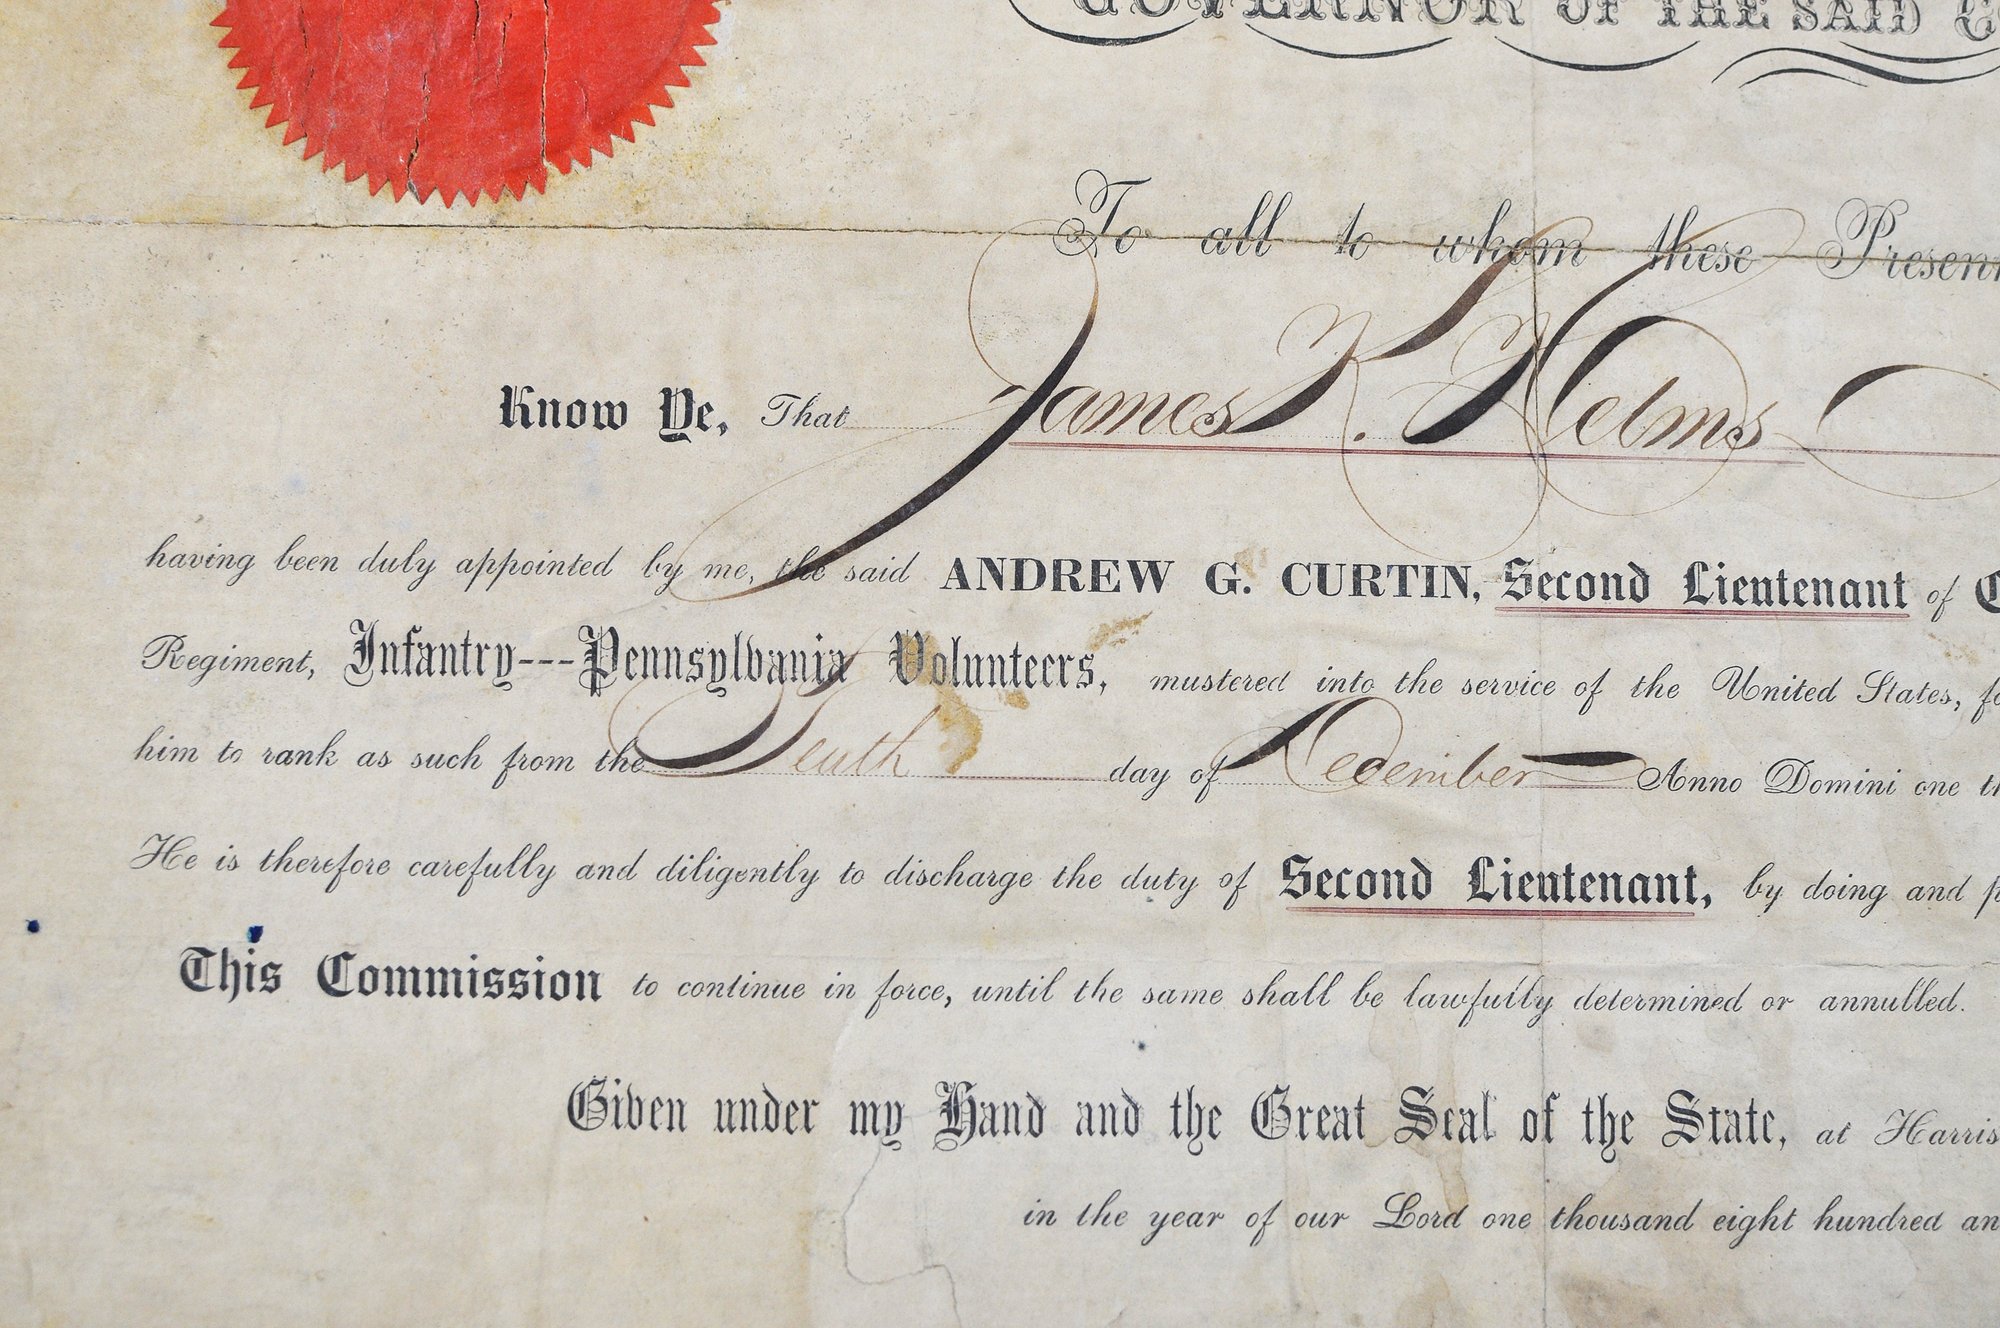 GOVERNOR OF THE SAID
To all to whom these
Know Ye, That James K. Helms
having been duly appointed by me, the said ANDREW G. CURTIN, Second Lieutenant of
Regiment, Infantry---Pennsylvania Volunteers, mustered into the service of the United States,
him to rank as such from the Tenth day of December Anno Domini one
He is therefore carefully and diligently to discharge the duty of Second Lieutenant, by doing and
This Commission to continue in force, until the same shall be lawfully determined or annulled.
Given under my Hand and the Great Seal of the State, at
in the year of our Lord one thousand eight hundred